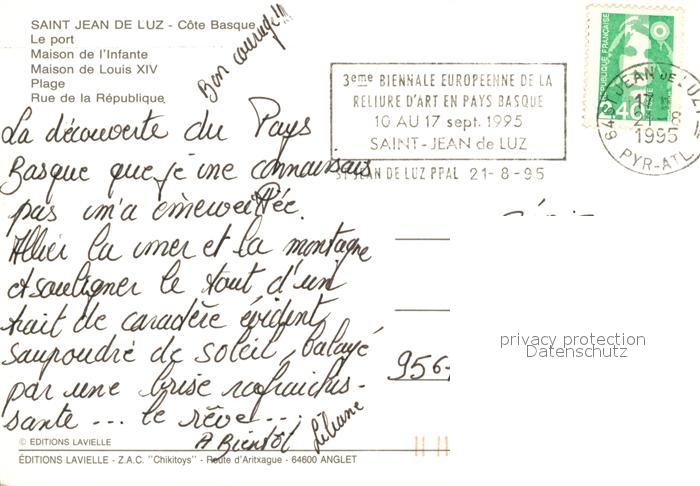 SAINT JEAN DE LUZ - Côte Basque
Le port
Maison de l'Infante
Maison de Louis XIV
Plage
Rue de la République
Bon courage!!!
La découverte du Pays
Basque que je ne connaissais
pas m'a émerveillée.
Allier la mer et la montagne
et souligner le tout d'un
trait de caractère évident,
saupoudré de soleil, balayé
par une brise rafraichis-
sante ... le rêve ...
A Bientôt Liliane
© EDITIONS LAVIELLE
ÉDITIONS LAVIELLE - Z.A.C. "Chikitoys" - Route d'Aritxague - 64600 ANGLET
3eme BIENNALE EUROPEENNE DE LA
RELIURE D'ART EN PAYS BASQUE
10 AU 17 sept. 1995
SAINT-JEAN de LUZ
ST JEAN DE LUZ PPAL 21-8-95
REPUBLIQUE FRANÇAISE
2,40
64 ST JEAN DE LUZ
17 H
21-8
1995
PYR-ATL
956
privacy protection
Datenschutz